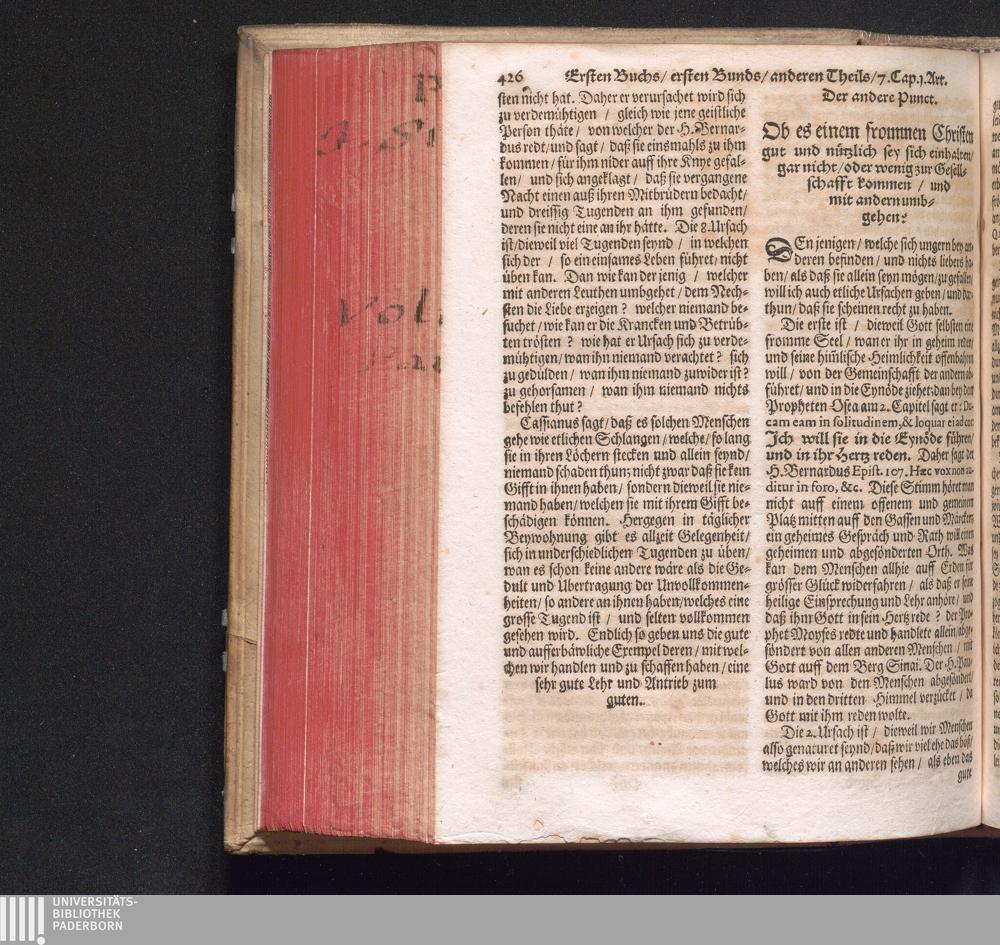 426 Ersten Buchs/ ersten Bunds/ anderen Theils/7.Cap.1.Art.
sten nicht hat. Daher er verursachet wird sich
zu verdemühtigen / gleich wie jene geistliche
Person thäte / von welcher der H. Bernar-
dus redt/und sagt/ daß sie einsmahls zu ihm
kommen/für ihm nider auff ihre Knye gefal-
len/ und sich angeklagt/ daß sie vergangene
Nacht einen auß ihren Mitbrüdern bedacht/
und dreissig Tugenden an ihm gefunden/
deren sie nicht eine an ihr hätte. Die 8. Ursach
ist/dieweil viel Tugenden seynd / in welchen
sich der / so ein einsames Leben führet/ nicht
üben kan. Dan wie kan der jenig / welcher
mit anderen Leuthen umbgehet/dem Nech-
sten die Liebe erzeigen? welcher niemand be-
suchet/wie kan er die Krancken und Betrüb-
ten trösten ? wie hat er Ursach sich zu verde-
mühtigen/wan ihn niemand verachtet? sich
zu gedülden/ wan ihm niemand zuwider ist?
zu gehorsamen / wan ihm niemand nichts
befehlen thut?
Cassianus sagt/daß es solchen Menschen
gehe wie etlichen Schlangen/welche/so lang
sie in ihren Löchern stecken und allein seynd/
niemand schaden thun; nicht zwar daß sie kein
Gifft in ihnen haben/ sondern dieweil sie nie-
mand haben/welchen sie mit ihrem Gifft be-
schädigen können. Hergegen in täglicher
Beywohnung gibt es allzeit Gelegenheit/
sich in underschiedlichen Tugenden zu üben/
wan es schon keine andere wäre als die Ge-
dult und Ubertragung der Unvollkommen-
heiten/ so andere an ihnen haben/welches eine
grosse Tugend ist / und selten vollkommen
gesehen wird. Endlich so geben uns die gute
und aufferbäwliche Exempel deren / mit wel-
chen wir handlen und zu schaffen haben / eine
sehr gute Lehr und Antrieb zum
guten.
Der andere Punct.
Ob es einem frommen Christen
gut und nützlich sey sich einhalten/
gar nicht/oder wenig zur Gesell-
schafft kommen / und
mit andern umb-
gehen?
DEn jenigen/ welche sich ungern bey an-
deren befinden/ und nichts liebers ha-
ben/als daß sie allein seyn mögen/zu gefallen/
will ich auch etliche Ursachen geben/ und dar-
thun/daß sie scheinen recht zu haben.
Die erste ist / dieweil Gott selbsten eine
fromme Seel / wan er ihr in geheim reden/
und seine himlische Heimlichkeit offenbahren
will / von der Gemeinschafft der andern ab-
führet/ und in die Eynöde ziehet: dan bey dem
Propheten Osea am 2. Capitel sagt er: Du-
cam eam in solitudinem, & loquar ei ad cor:
Ich will sie in die Eynöde führen/
und in ihr Hertz reden. Daher sagt der
H. Bernardus Epist. 107. Hæc vox non au-
ditur in foro, &c. Diese Stimm höret man
nicht auff einem offenem und gemeinem
Platz mitten auff den Gassen und Märckten
ein geheimes Gespräch und Rath will einen
geheimen und abgesönderten Orth. Was
kan dem Menschen allhie auff Erden für
grösser Glück widerfahren / als daß er seine
heilige Einsprechung und Lehr anhöre/ und
daß ihm Gott in sein Hertz rede ? der Pro-
phet Moyses redte und handlete allein/abge-
söndert von allen anderen Menschen / mit
Gott auff dem Berg Sinai. Der H. Pau-
lus ward von den Menschen abgesöndert/
und in den dritten Himmel verzücket / da
Gott mit ihm reden wolte.
Die 2. Ursach ist / dieweil wir Menschen
also genaturet seynd/daß wir viel ehe das böß/
welches wir an anderen sehen/ als eben das
gute
Vol.
UNIVERSITÄTS-
BIBLIOTHEK
PADERBORN